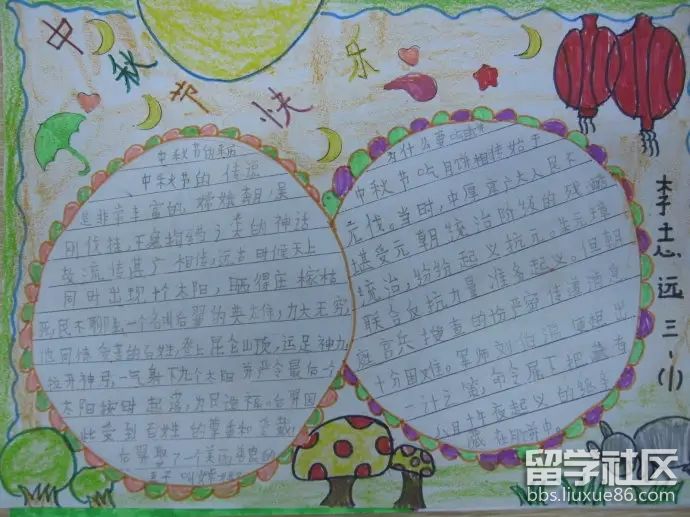 中秋节快乐
中秋节的来历
中秋节的传说
是非常丰富的,嫦娥奔月,吴
刚伐桂,之类的神话
故流传甚广相传,远古时候天上
同时出现十太阳,晒得庄稼枯
死,民不聊生一个名叫后羿的英大雄,力大无穷,
他同情受害的百姓,登上昆仑山顶,运足神力,
拉开神弓,一气射下九个太阳并严令最后一个
太阳按时起落,为民造福。后羿因
此受到百姓的尊重和爱戴,
后羿娶了一个美丽善良的
妻子叫嫦娥
为什么要吃
中秋节吃月饼相传始于
元代。当时,中原广大人民不
堪受元朝统治阶级的残酷
统治,纷纷起义抗元。朱元璋
联合反抗力量准备起义。但朝
廷官兵搜查的份严密传递消息
十分困难。军师刘伯温便想出
一计之策,命令属下把藏有
八月十五夜起义的纸条
藏在饼中。
李志远
三·(1)
留学社区
bbs.liuxue86.com